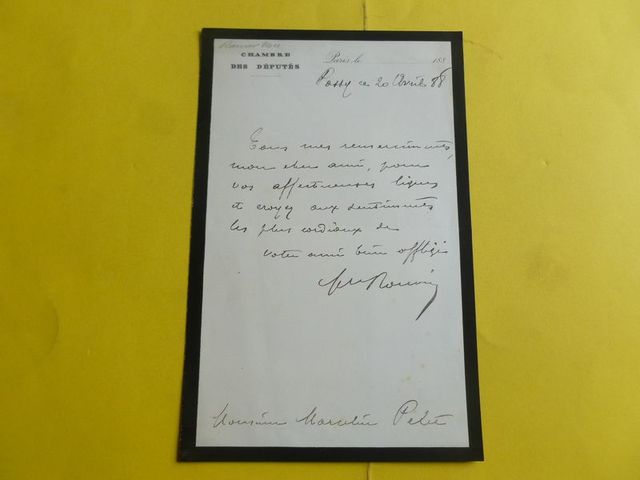 CHAMBRE
DES DÉPUTÉS
Paris, le 188
Passy ce 20 Avril 88
Tous mes remerciements,
mon cher ami, pour
vos affectueuses lignes
et croyez aux sentiments
les plus cordiaux de
votre ami bien affligé
Monsieur Marcellin Pellet